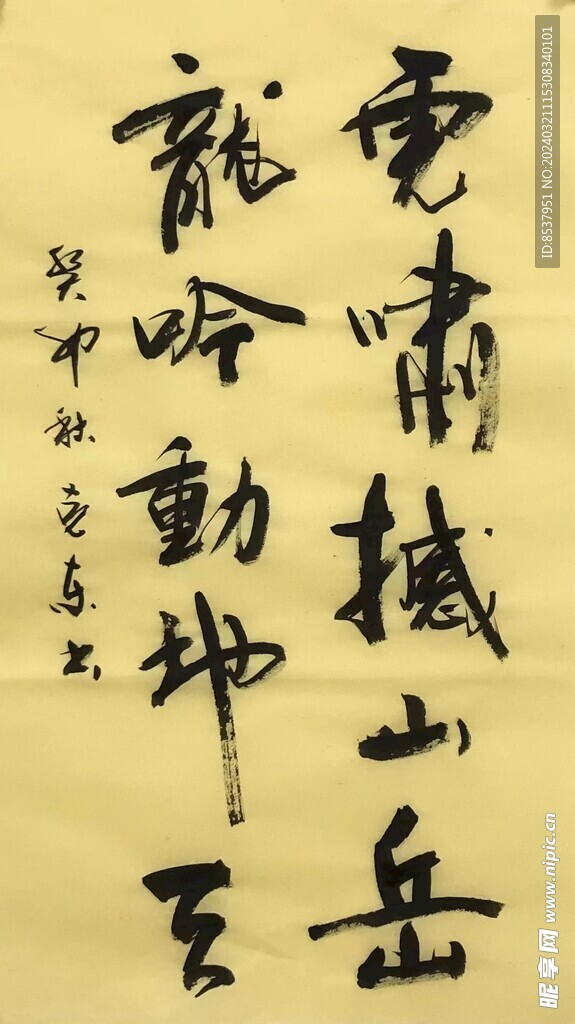 虎啸撼山岳
龍吟動地天
癸卯秋克東书
ID:8537951 NO:20240321115308340101
昵享网 www.nipic.cn